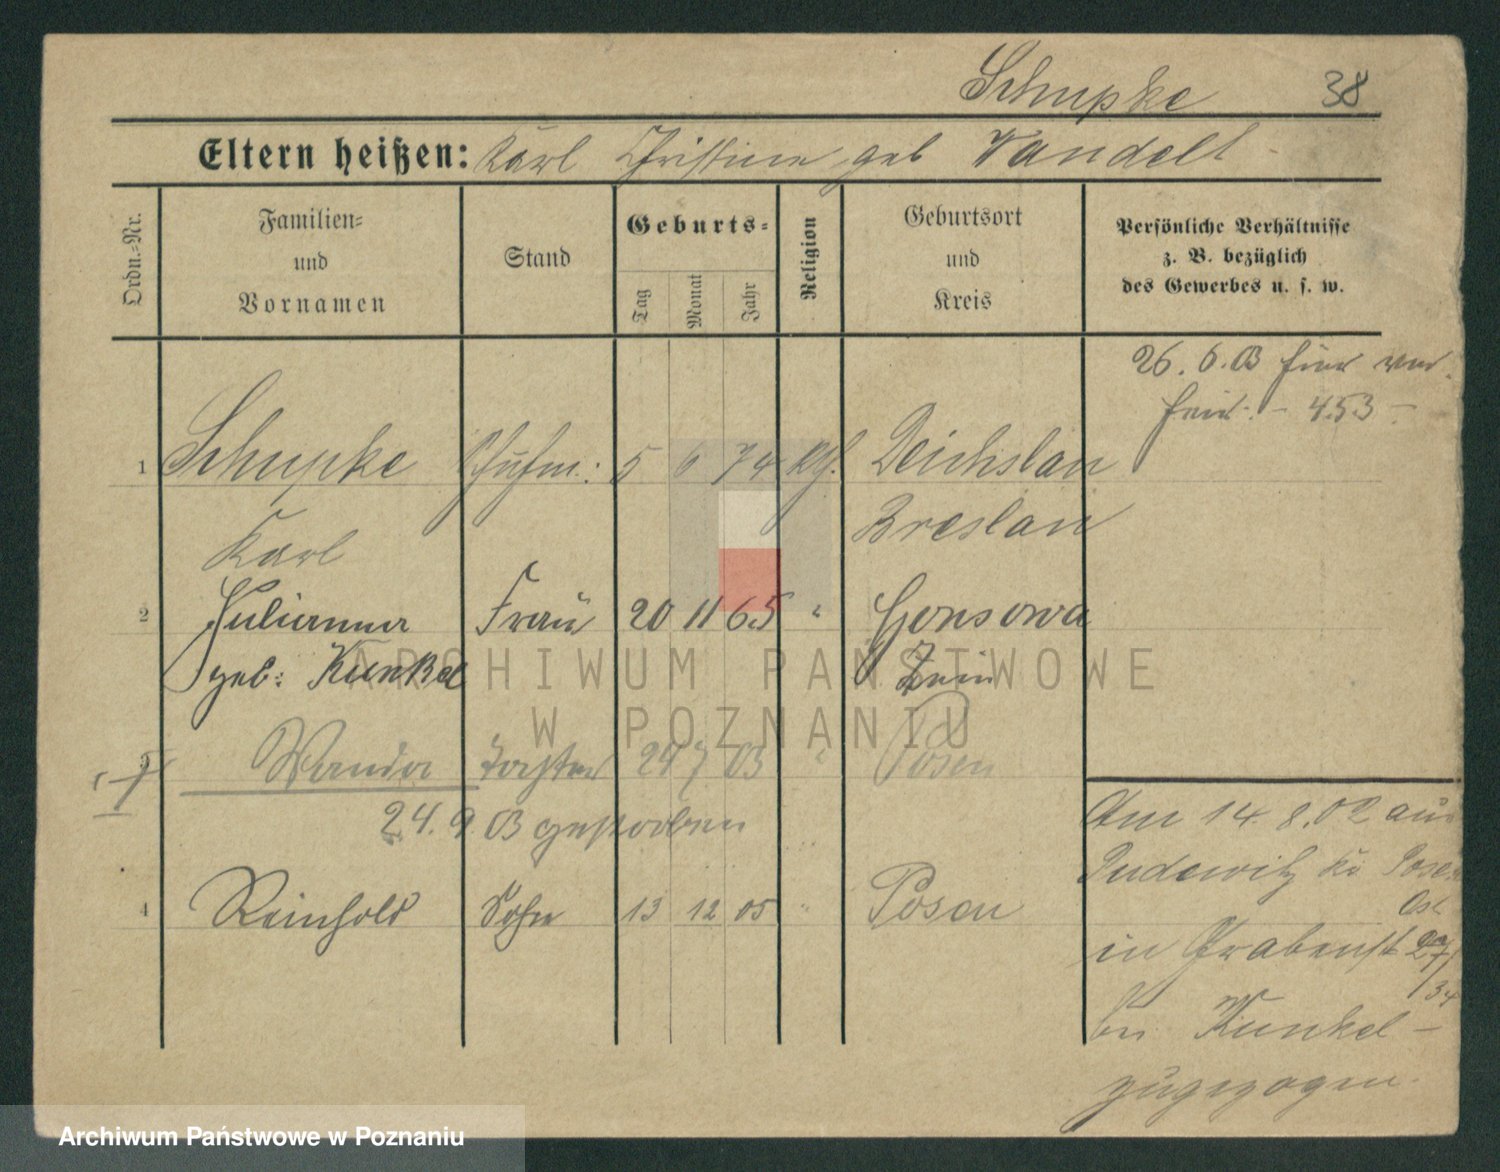 Schupke 38
Eltern heißen: Karl Christine geb Wandelt
Ordn.-Nr.
Familien-
und
Vornamen
Stand
Geburts-
Tag
Monat
Jahr
Religion
Geburtsort
und
Kreis
Persönliche Verhältnisse
z. B. bezüglich
des Gewerbes u. s. w.
26. 6. 03
453
1 Schupke 5 6 74 Deichslau
Karl Breslau
2 Julianna Frau 20 11 65 " Gonsawa
geb: Kunkel Znin
Wanda Tochter 29 7 03 " Posen
24. 9 03 gestorben
4 Reinhold Sohn 13 12 05 " Posen
Am 14. 8. 02 aus
Pudewitz Kr Posen
Ost
in Grabenst 27/
34
bei Kunkel -
zugezogen.
ARCHIWUM PAŃSTWOWE
W POZNANIU
Archiwum Państwowe w Poznaniu